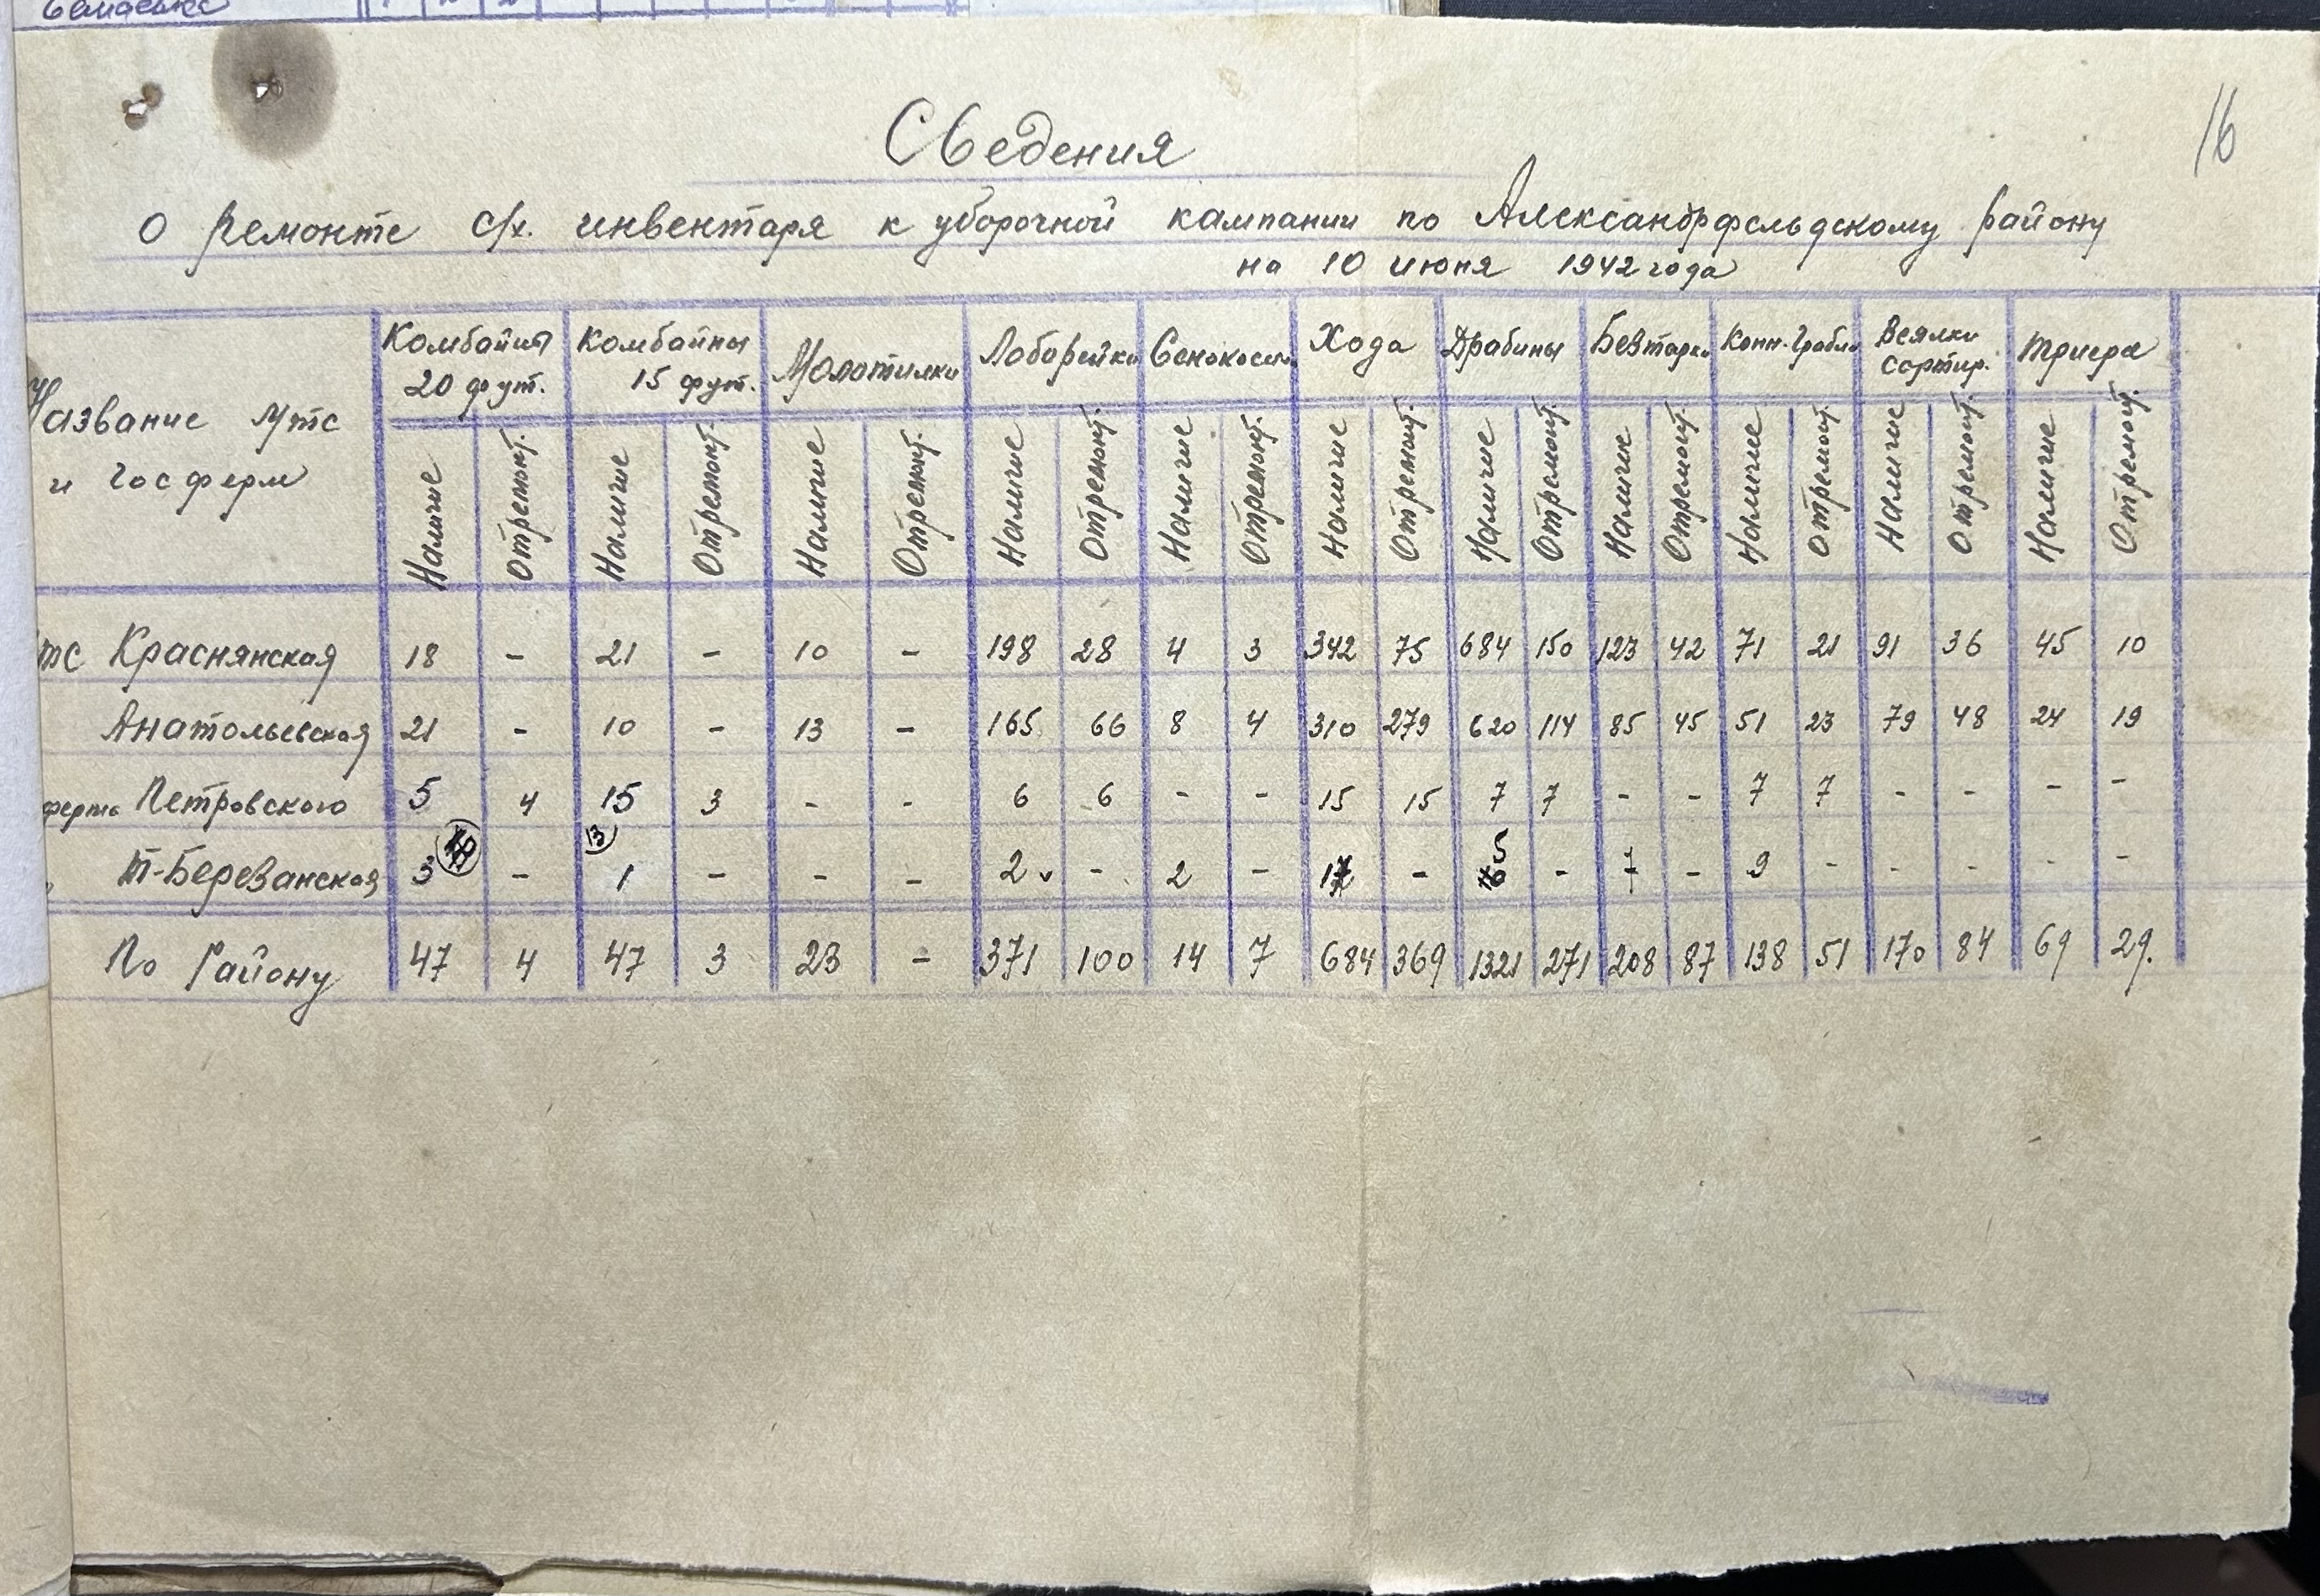 16
Сведения
о ремонте с/х. инвентаря к уборочной кампании по Александрфельдскому району
на 10 июня 1942 года
Название Мтс и госферм | Комбайны 20 фут. | Комбайны 15 фут. | Молотилки | Лобогрейки | Сенокосил. | Хода | Драбины | Безтарки | Конн. Грабли | Веялки сортир. | Триера
Наличие | Отремонт. | Наличие | Отремонт. | Наличие | Отремонт. | Наличие | Отремонт. | Наличие | Отремонт. | Наличие | Отремонт. | Наличие | Отремонт. | Наличие | Отремонт. | Наличие | Отремонт. | Наличие | Отремонт. | Наличие | Отремонт.
мтс Краснянская | 18 | - | 21 | - | 10 | - | 198 | 28 | 4 | 3 | 342 | 75 | 684 | 150 | 123 | 42 | 71 | 21 | 91 | 36 | 45 | 10
Анатольевская | 21 | - | 10 | - | 13 | - | 165 | 66 | 8 | 4 | 310 | 279 | 620 | 114 | 85 | 45 | 51 | 23 | 79 | 48 | 24 | 19
ферма Петровского | 5 | 4 | 15 | 3 | - | - | 6 | 6 | - | - | 15 | 15 | 7 | 7 | - | - | 7 | 7 | - | - | - | -
" Т-Березанская | 3 | - | 13 1 | - | - | - | 2 | - | 2 | - | 17 | - | 5 | - | - | - | 9 | - | - | - | - | -
По Району | 47 | 4 | 47 | 3 | 23 | - | 371 | 100 | 14 | 7 | 684 | 369 | 1321 | 271 | 208 | 87 | 138 | 51 | 170 | 84 | 69 | 29.